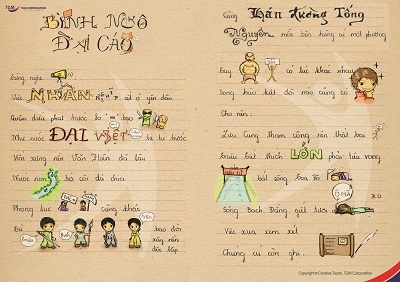 TGM CORPORATION
BÌNH NGÔ
ĐẠI CÁO
Từng nghe
Việc NHÂN nghĩa cốt ở yên dân
Quân điếu phạt trước lo bạo
Như nước ĐẠI Việt ta từ trước
Vốn xưng nền Văn Hiến đã lâu
Núi sông bờ cõi đã chia
Phong tục cũng khác
Từ Triệu Đinh Lý Trần bao đời xây nền độc lập
Cùng Hán Đường Tống
Nguyên mỗi bên hùng cứ một phương
Tuy có lúc khác nhau
Song hào kiệt đời nào cũng có
Cho nên:
Lưu Cung tham công nên thất bại
Triệu Tiết thích LỚN phải tiêu vong
bắt sống Toa Đô
Sông Bạch Đằng giết tươi Ô MÃ
Việc xưa xem xét
Chứng cứ còn ghi
Copyright by Creative Team, TGM Corporation